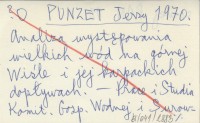 30 PUNZET Jerzy 1970.
Analiza występowania
wielkich wód na górnej
Wiśle i jej karpackich
dopływach. — Prace i Studia
Komit. Gosp. Wodnej i Surow.